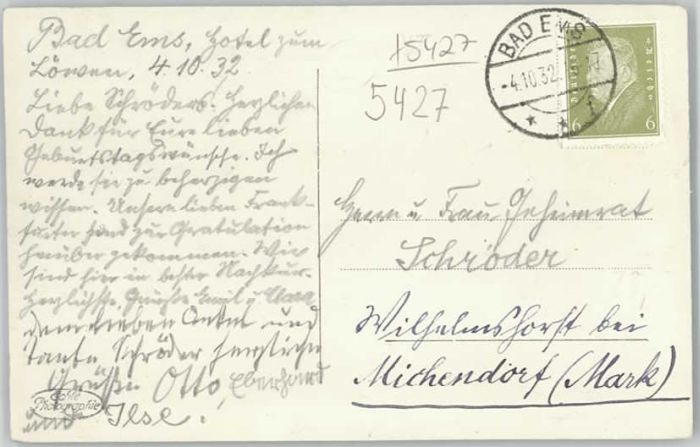 Bad Ems, Hotel zum
Löwen, 4.10.32.
Liebe Schröders. Herzlichen
Dank für Eure lieben
Geburtstagswünsche. Ich
werde sie zu beherzigen
wissen. Unsere lieben Frank-
furter sind zur Gratulation
herüber gekommen. Wir
sind hier in bester Nachkur.
Herzlichste Grüße Emil u. Clara
dem lieben Onkel und
Tante Schröder herzliche
Grüße Otto, Eberhard
und Ilse.
Echte
Photographie
15427
5427
BAD EMS
-4.10.32
Deutsches Reich
6 6
Herrn u Frau Geheimrat
Schröder
Wilhelmshorst bei
Michendorf (Mark)